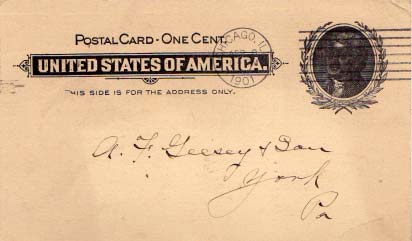 POSTAL CARD - ONE CENT.
CHICAGO, ILL.
UNITED STATES OF AMERICA.
1901
THIS SIDE IS FOR THE ADDRESS ONLY.
A. F. Geesey & Son
York
Pa